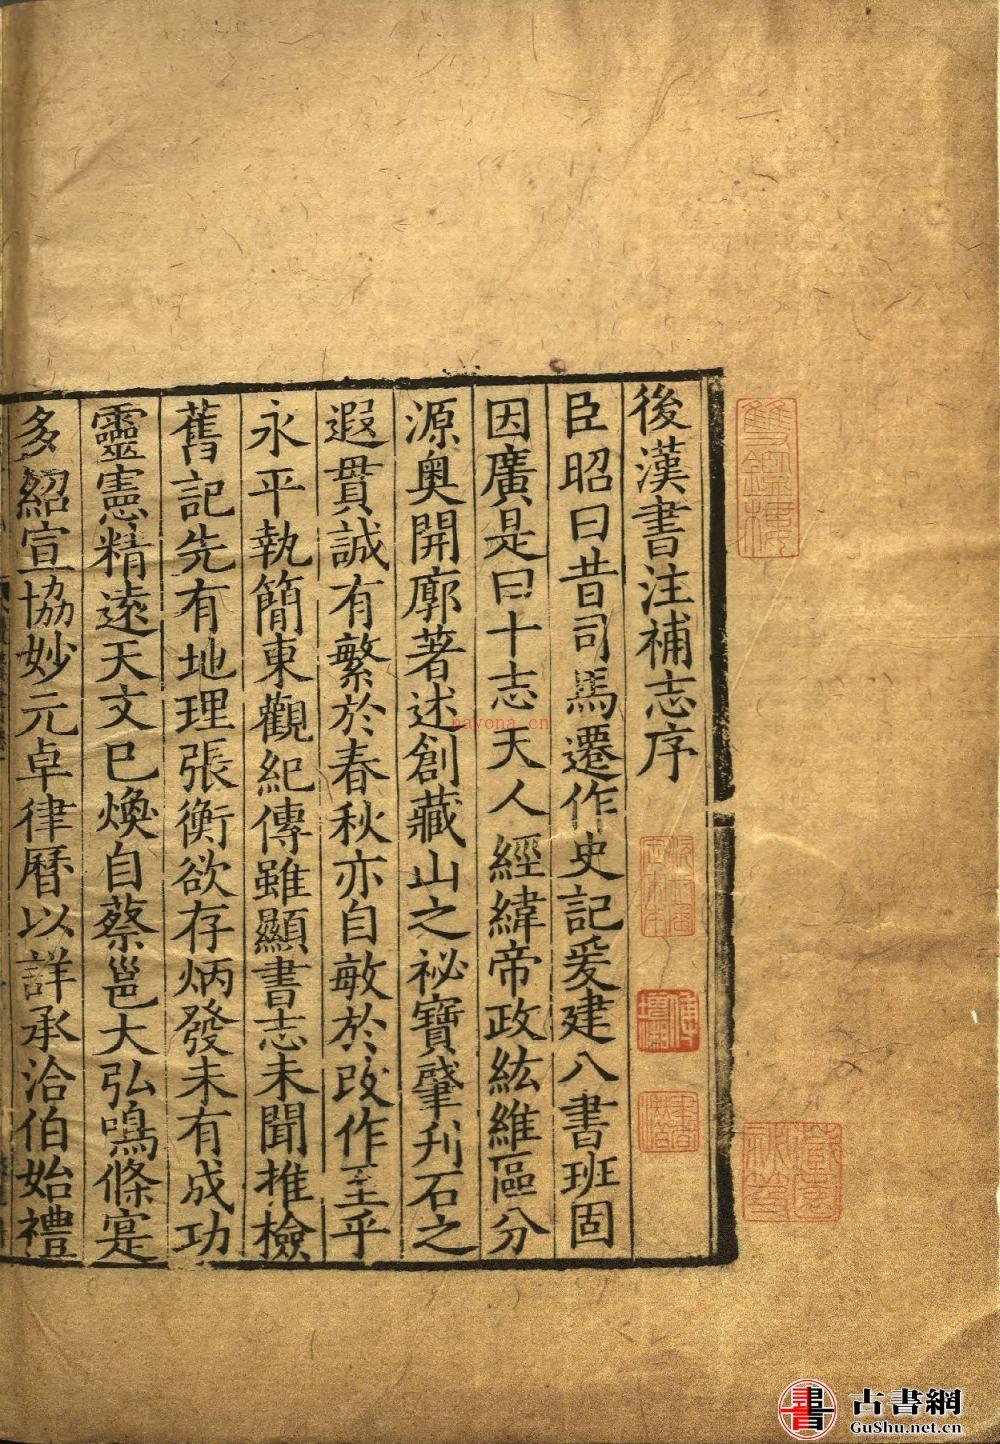 後漢書注補志序
臣昭曰昔司馬遷作史記爰建八書班固
因廣是曰十志天人經緯帝政紘維區分
源奧開廓著述創藏山之祕寶肇刋石之
遐貫誠有繁於春秋亦自敏於改作至乎
永平執簡東觀紀傳雖顯書志未聞推檢
舊記先有地理張衡欲存炳發未有成功
靈憲精遠天文巳煥自蔡邕大弘鳴條寔
多紹宣協妙元卓律曆以詳承洽伯始禮
雙鑑樓
藏園秘笈
navona.cn
書
古書網
GuShu.net.cn